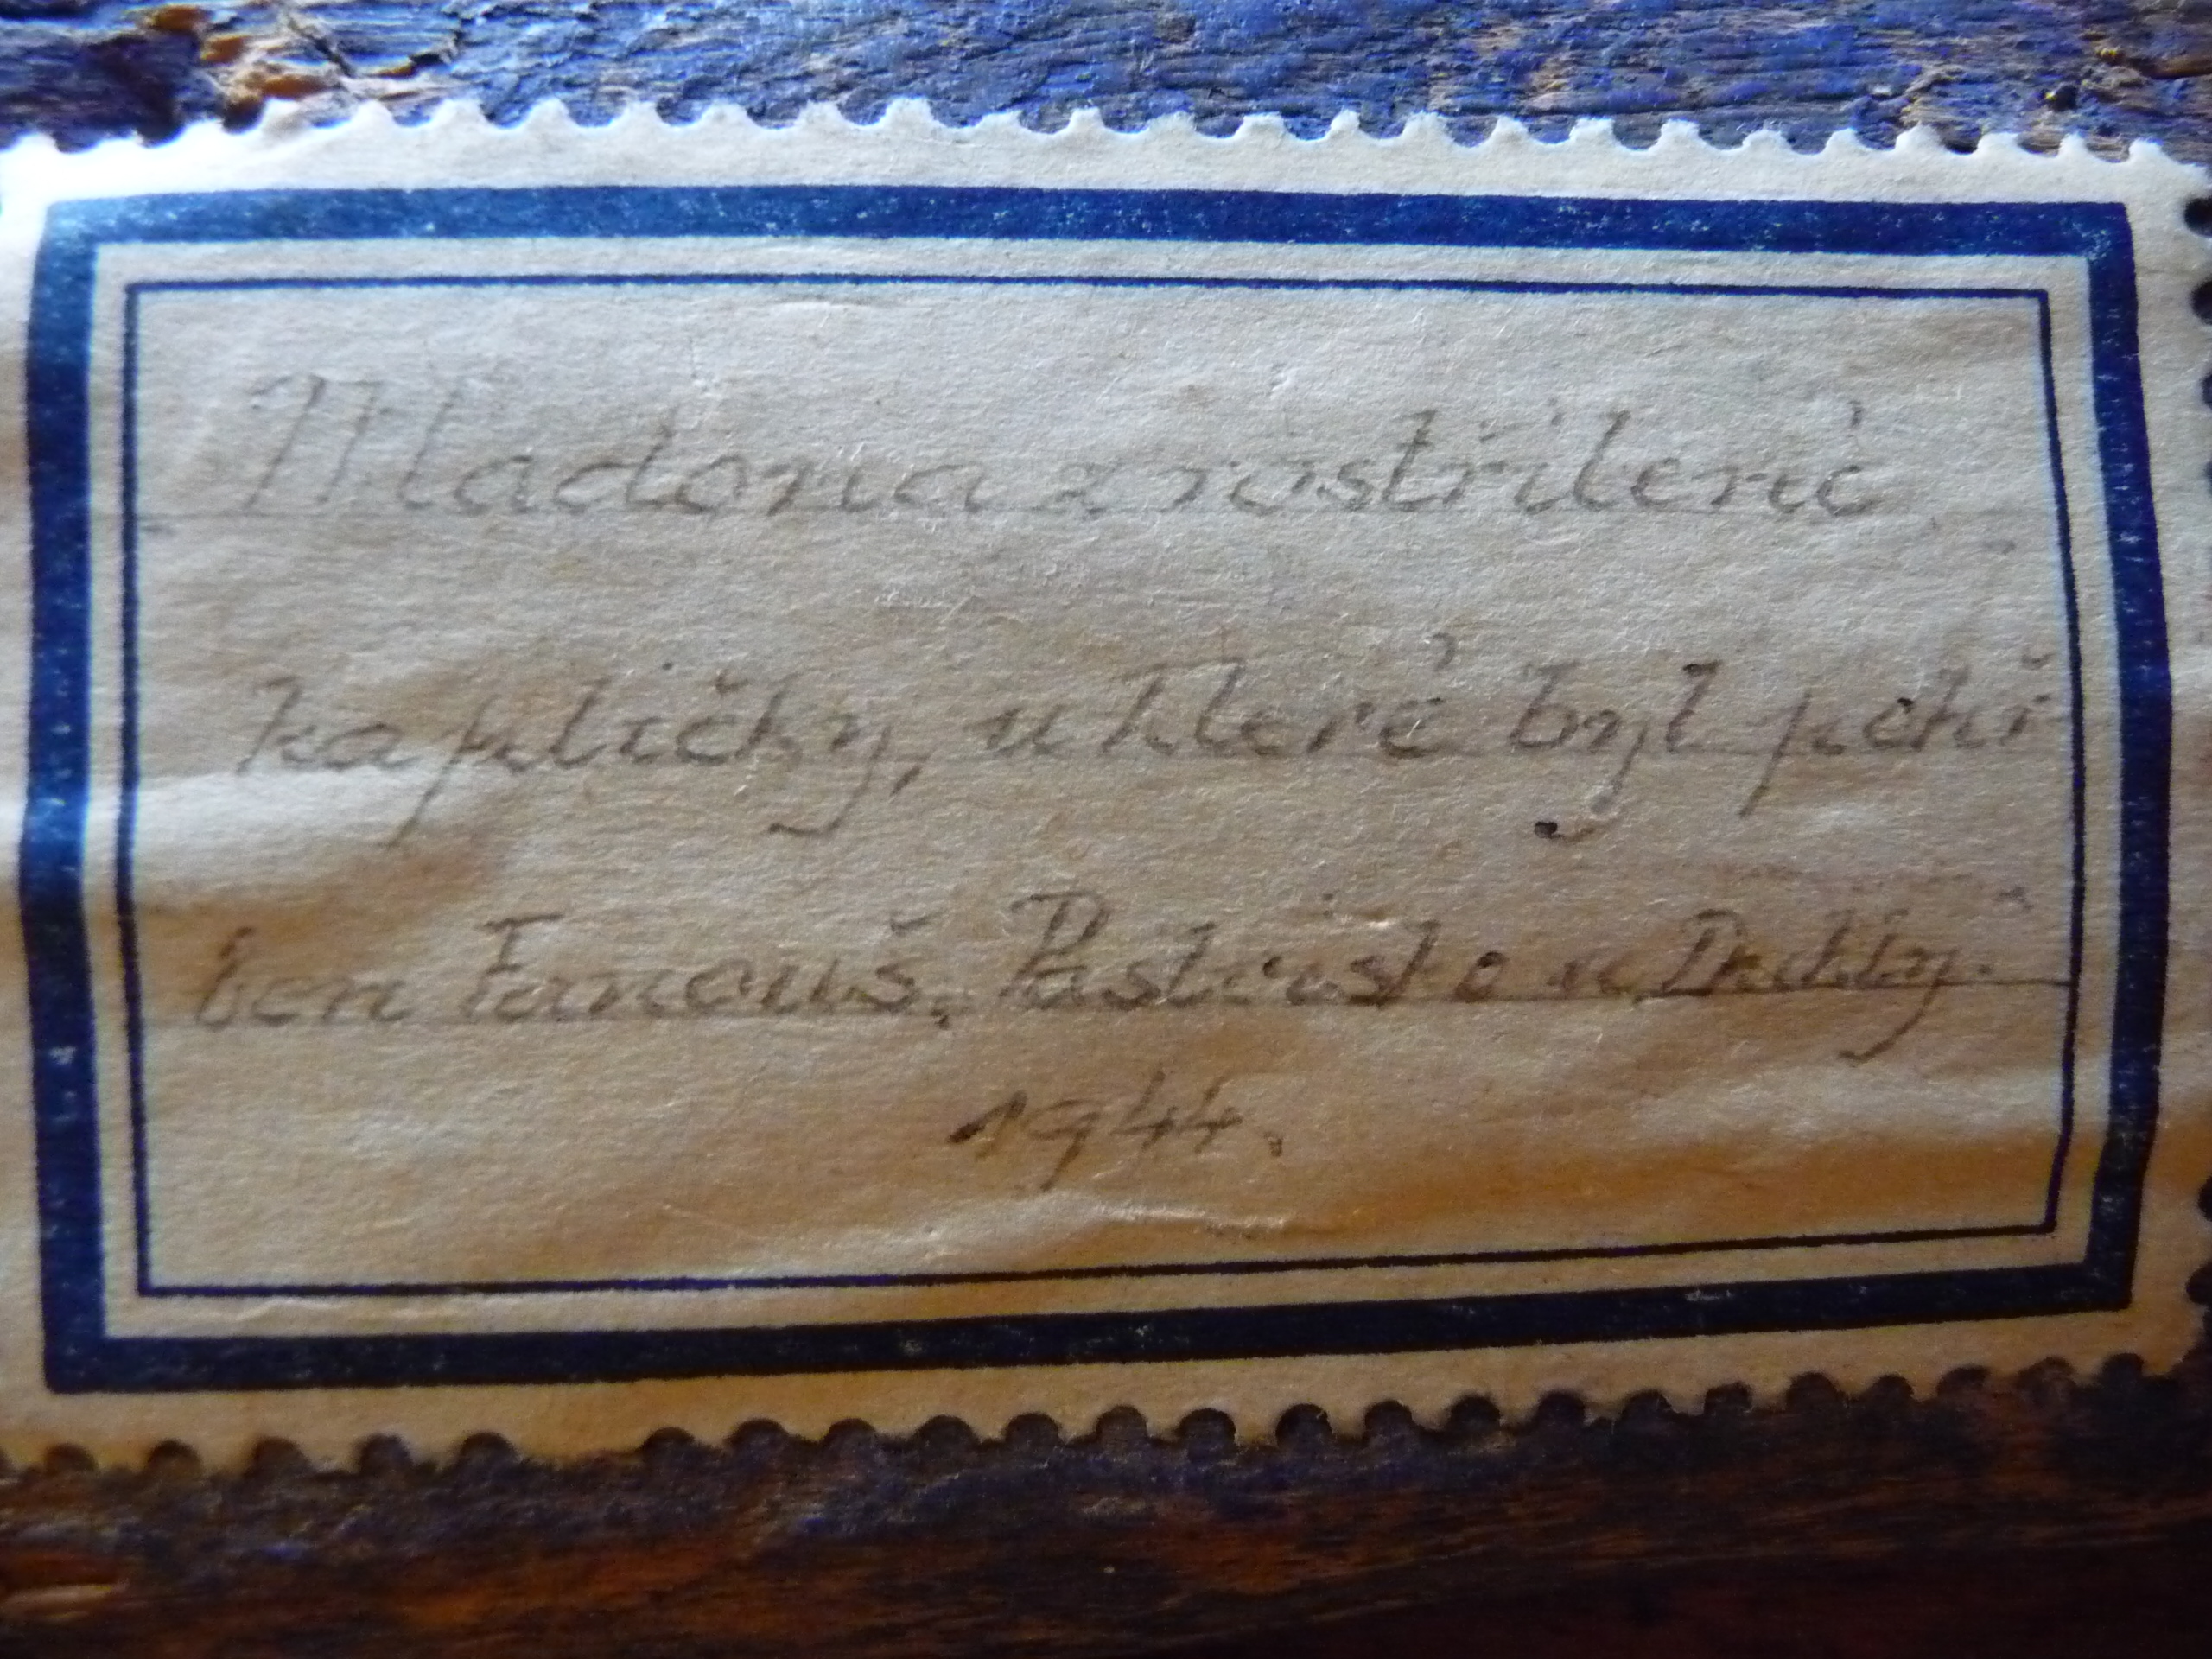 Madona z rostřílené
kapličky, u které byl pohř
ben Fanouš. Pastvisko u Dukly.
1944.